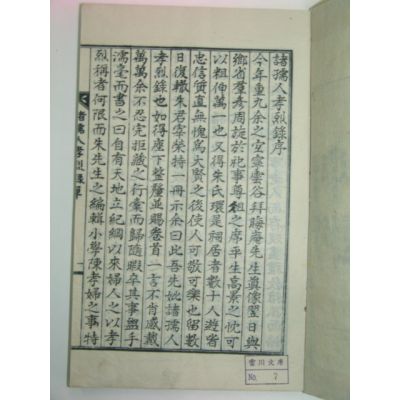 諸孺人孝烈錄序
今年重九余之空寧雲谷拜晦庵先生眞像翌日與
鄉省羣彥周旋於祀事尊祖之席平生高景之忱可
以粗伸萬一也又得朱氏環是祠居者數十人遊省
忠信質直無愧爲大賢之後使人可敬可樂也留數
日復轍朱君宰榮特一冊示余曰此吾先妣諸孺人
孝烈錄也如得座下整釐並賜卷首一言不肖感戴
萬萬余不忍完拒藏之行橐而歸隨暇卒其事盥手
濡毫而書之曰自有天地立紀綱以來婦人之以孝
烈稱者何限而朱先生之編輯小學陳孝婦之事特
諸孺人孝烈錄單
一
雷川文庫
No. 7